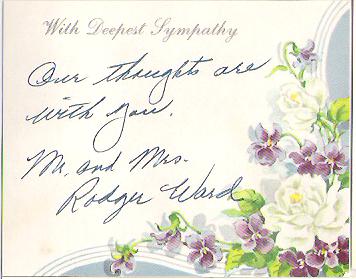 With Deepest Sympathy
Our thoughts are
with you.
Mr. and Mrs.
Rodger Ward